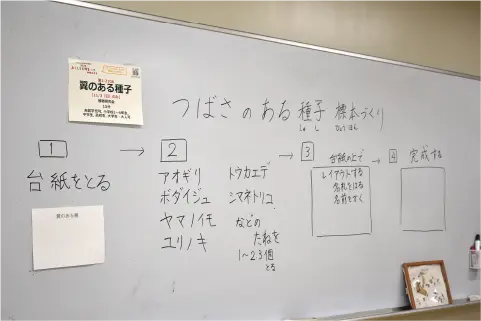 翼のある種子
つばさのある種子 標本づくり
しゅ し ひょうほん
1 → 2 → 3 → 4
台紙をとる
翼のある種
アオギリ
ボダイジュ
ヤマノイモ
ユリノキ
トウカエデ
シマネトリコ
などの
たねを
1～23個
とる
台紙の上で
レイアウトする
名札をはる
名前をかく
完成する